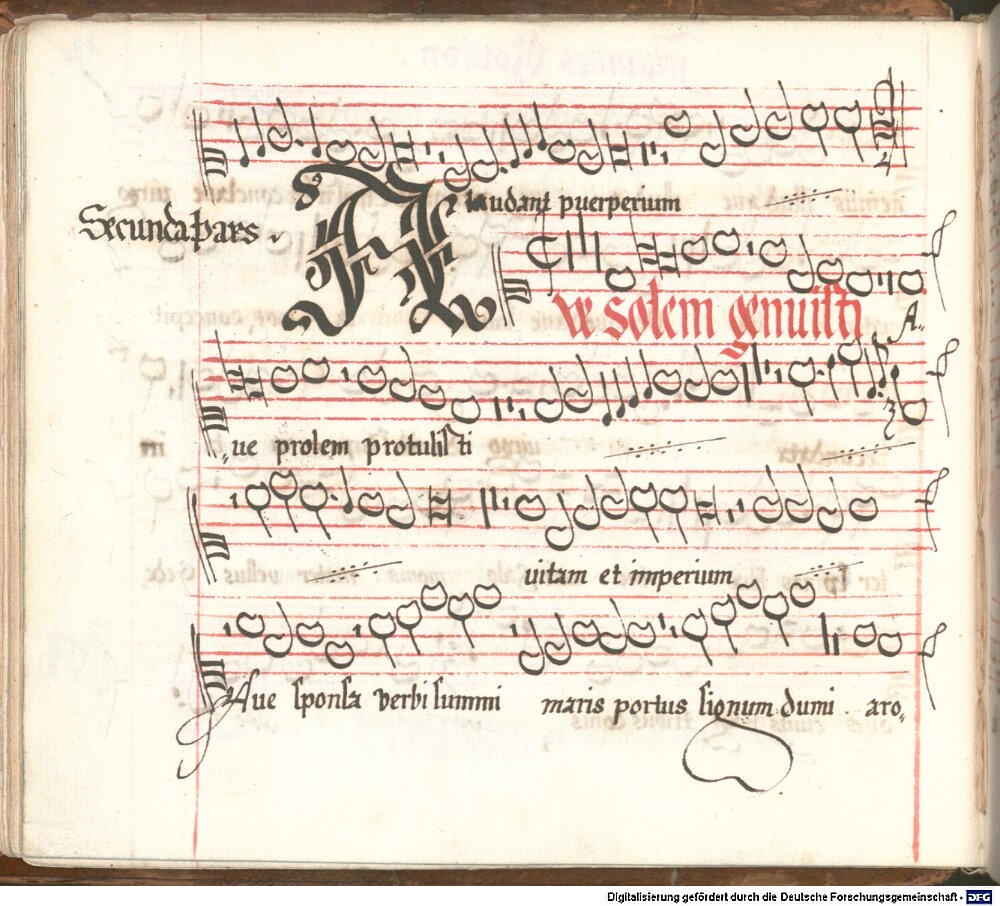 laudant puerperium
Secunda pars.
Ave solem genuisti A-
ue prolem protulisti
uitam et imperium
Aue sponsa verbi summi maris portus signum dumi aro-
Digitalisierung gefördert durch die Deutsche Forschungsgemeinschaft - DFG